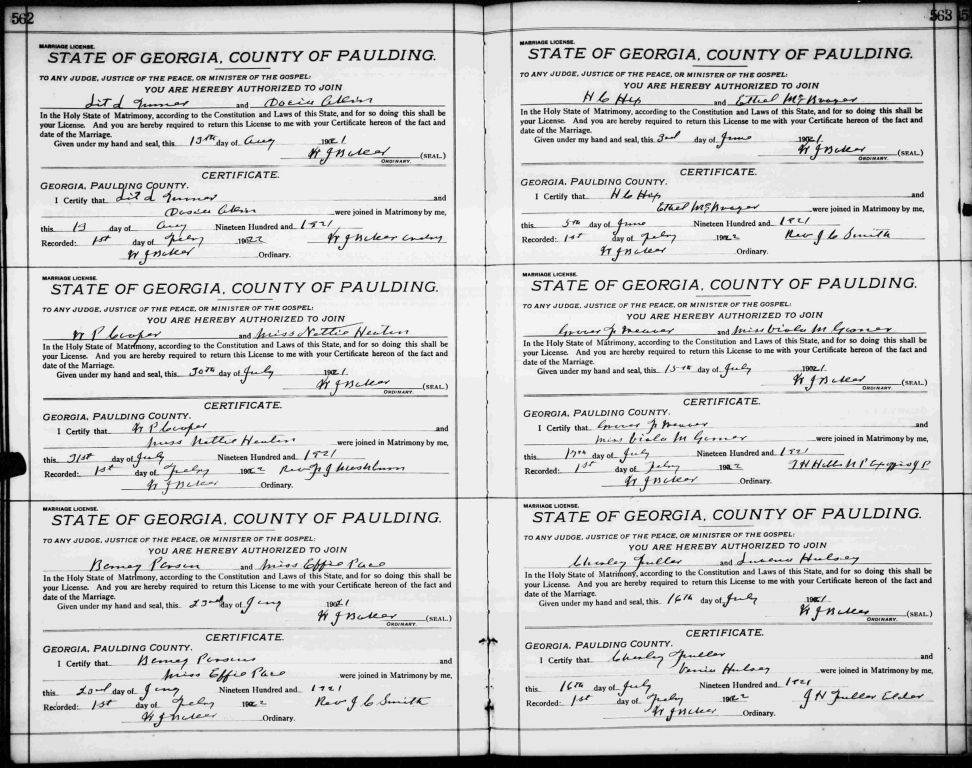 562
MARRIAGE LICENSE.
STATE OF GEORGIA, COUNTY OF PAULDING.
TO ANY JUDGE, JUSTICE OF THE PEACE, OR MINISTER OF THE GOSPEL:
YOU ARE HEREBY AUTHORIZED TO JOIN
and
In the Holy State of Matrimony, according to the Constitution and Laws of this State, and for so doing this shall be
your License. And you are hereby required to return this License to me with your Certificate hereon of the fact and
date of the Marriage.
Given under my hand and seal, this 13th day of Aug 1921
W J Baker (SEAL.)
ORDINARY.
CERTIFICATE.
GEORGIA, PAULDING COUNTY.
I Certify that and
were joined in Matrimony by me,
this 13 day of Aug Nineteen Hundred and 1921
Recorded: 1st day of Feby 1922 W J Baker
W J Baker Ordinary.
MARRIAGE LICENSE.
STATE OF GEORGIA, COUNTY OF PAULDING.
TO ANY JUDGE, JUSTICE OF THE PEACE, OR MINISTER OF THE GOSPEL:
YOU ARE HEREBY AUTHORIZED TO JOIN
W P Cooper and Miss Nettie
In the Holy State of Matrimony, according to the Constitution and Laws of this State, and for so doing this shall be
your License. And you are hereby required to return this License to me with your Certificate hereon of the fact and
date of the Marriage.
Given under my hand and seal, this 30th day of July 1921
W J Baker (SEAL)
ORDINARY.
CERTIFICATE.
GEORGIA, PAULDING COUNTY.
I Certify that W P Cooper and
Miss Nettie were joined in Matrimony by me,
this 31st day of July Nineteen Hundred and 1921
Recorded: 1st day of Feby 1922 Rev J Mashburn
W J Baker Ordinary.
MARRIAGE LICENSE.
STATE OF GEORGIA, COUNTY OF PAULDING.
TO ANY JUDGE, JUSTICE OF THE PEACE, OR MINISTER OF THE GOSPEL:
YOU ARE HEREBY AUTHORIZED TO JOIN
Berney and Miss Effie Pace
In the Holy State of Matrimony, according to the Constitution and Laws of this State, and for so doing this shall be
your License. And you are hereby required to return this License to me with your Certificate hereon of the fact and
date of the Marriage.
Given under my hand and seal, this 23rd day of 1921
W J Baker (SEAL)
ORDINARY.
CERTIFICATE.
GEORGIA, PAULDING COUNTY.
I Certify that Berney Parsons and
Miss Effie Pace were joined in Matrimony by me,
this 23rd day of Nineteen Hundred and 1921
Recorded: 1st day of Feby 1922 Rev J C Smith
W J Baker Ordinary.
563
MARRIAGE LICENSE.
STATE OF GEORGIA, COUNTY OF PAULDING.
TO ANY JUDGE, JUSTICE OF THE PEACE, OR MINISTER OF THE GOSPEL:
YOU ARE HEREBY AUTHORIZED TO JOIN
H C and Ethel
In the Holy State of Matrimony, according to the Constitution and Laws of this State, and for so doing this shall be
your License. And you are hereby required to return this License to me with your Certificate hereon of the fact and
date of the Marriage.
Given under my hand and seal, this 3rd day of June 1921
W J Baker (SEAL)
ORDINARY.
CERTIFICATE.
GEORGIA, PAULDING COUNTY.
I Certify that H C and
Ethel were joined in Matrimony by me,
this 5th day of June Nineteen Hundred and 1921
Recorded: 1st day of Feby 1922 Rev J C Smith
W J Baker Ordinary.
MARRIAGE LICENSE.
STATE OF GEORGIA, COUNTY OF PAULDING.
TO ANY JUDGE, JUSTICE OF THE PEACE, OR MINISTER OF THE GOSPEL:
YOU ARE HEREBY AUTHORIZED TO JOIN
and Miss Viola M
In the Holy State of Matrimony, according to the Constitution and Laws of this State, and for so doing this shall be
your License. And you are hereby required to return this License to me with your Certificate hereon of the fact and
date of the Marriage.
Given under my hand and seal, this 15th day of July 1921
W J Baker (SEAL)
ORDINARY.
CERTIFICATE.
GEORGIA, PAULDING COUNTY.
I Certify that and
Miss Viola M were joined in Matrimony by me,
this 17th day of July Nineteen Hundred and 1921
Recorded: 1st day of Feby 1922 N P
W J Baker Ordinary.
MARRIAGE LICENSE.
STATE OF GEORGIA, COUNTY OF PAULDING.
TO ANY JUDGE, JUSTICE OF THE PEACE, OR MINISTER OF THE GOSPEL:
YOU ARE HEREBY AUTHORIZED TO JOIN
Fuller and Hulsey
In the Holy State of Matrimony, according to the Constitution and Laws of this State, and for so doing this shall be
your License. And you are hereby required to return this License to me with your Certificate hereon of the fact and
date of the Marriage.
Given under my hand and seal, this 16th day of July 1921
W J Baker (SEAL)
ORDINARY.
CERTIFICATE.
GEORGIA, PAULDING COUNTY.
I Certify that Fuller and
Hulsey were joined in Matrimony by me,
this 16th day of July Nineteen Hundred and 1921
Recorded: 1st day of Feby 1922 J H Fuller Elder
W J Baker Ordinary.